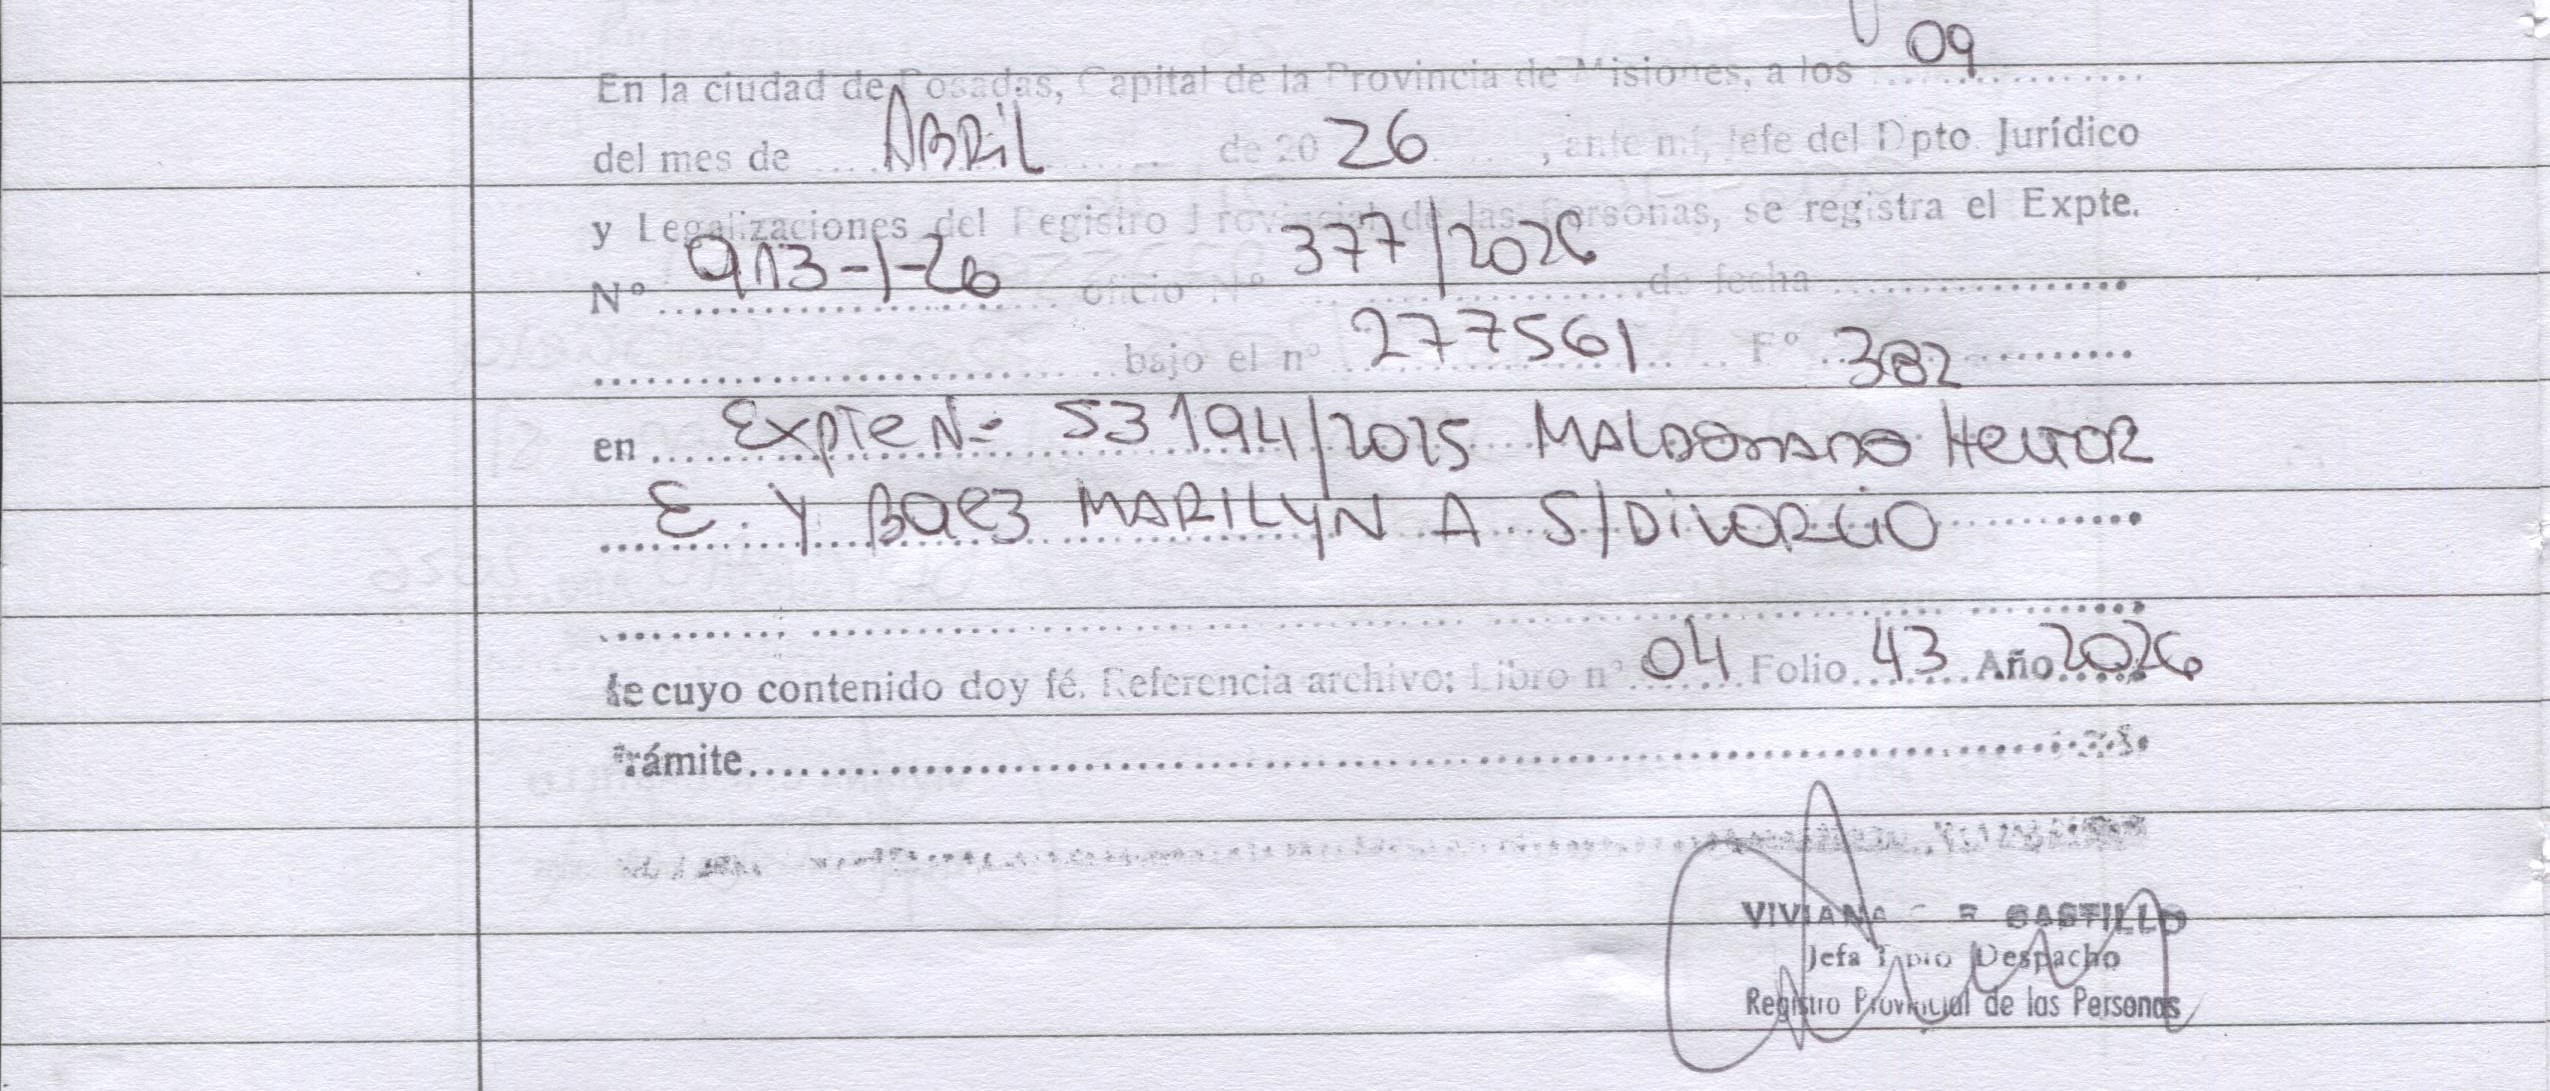 En la ciudad de Posadas, Capital de la Provincia de Misiones, a los 09
del mes de ABRIL de 20 26, ante mí, Jefe del Dpto. Jurídico
y Legalizaciones del Registro Provincial de las Personas, se registra el Expte.
N° 913-1-26 oficio N° 377/2026 de fecha
bajo el n° 277561 F° 382
en Expte N° 53194/2025 MALDONADO HECTOR
E. Y BAEZ MARILYN A S/DIVORCIO
de cuyo contenido doy fé. Referencia archivo: Libro n° 04 Folio 43 Año 2026
Trámite
VIVIANA CASTILLO
Jefa Dpto Despacho
Registro Provincial de las Personas